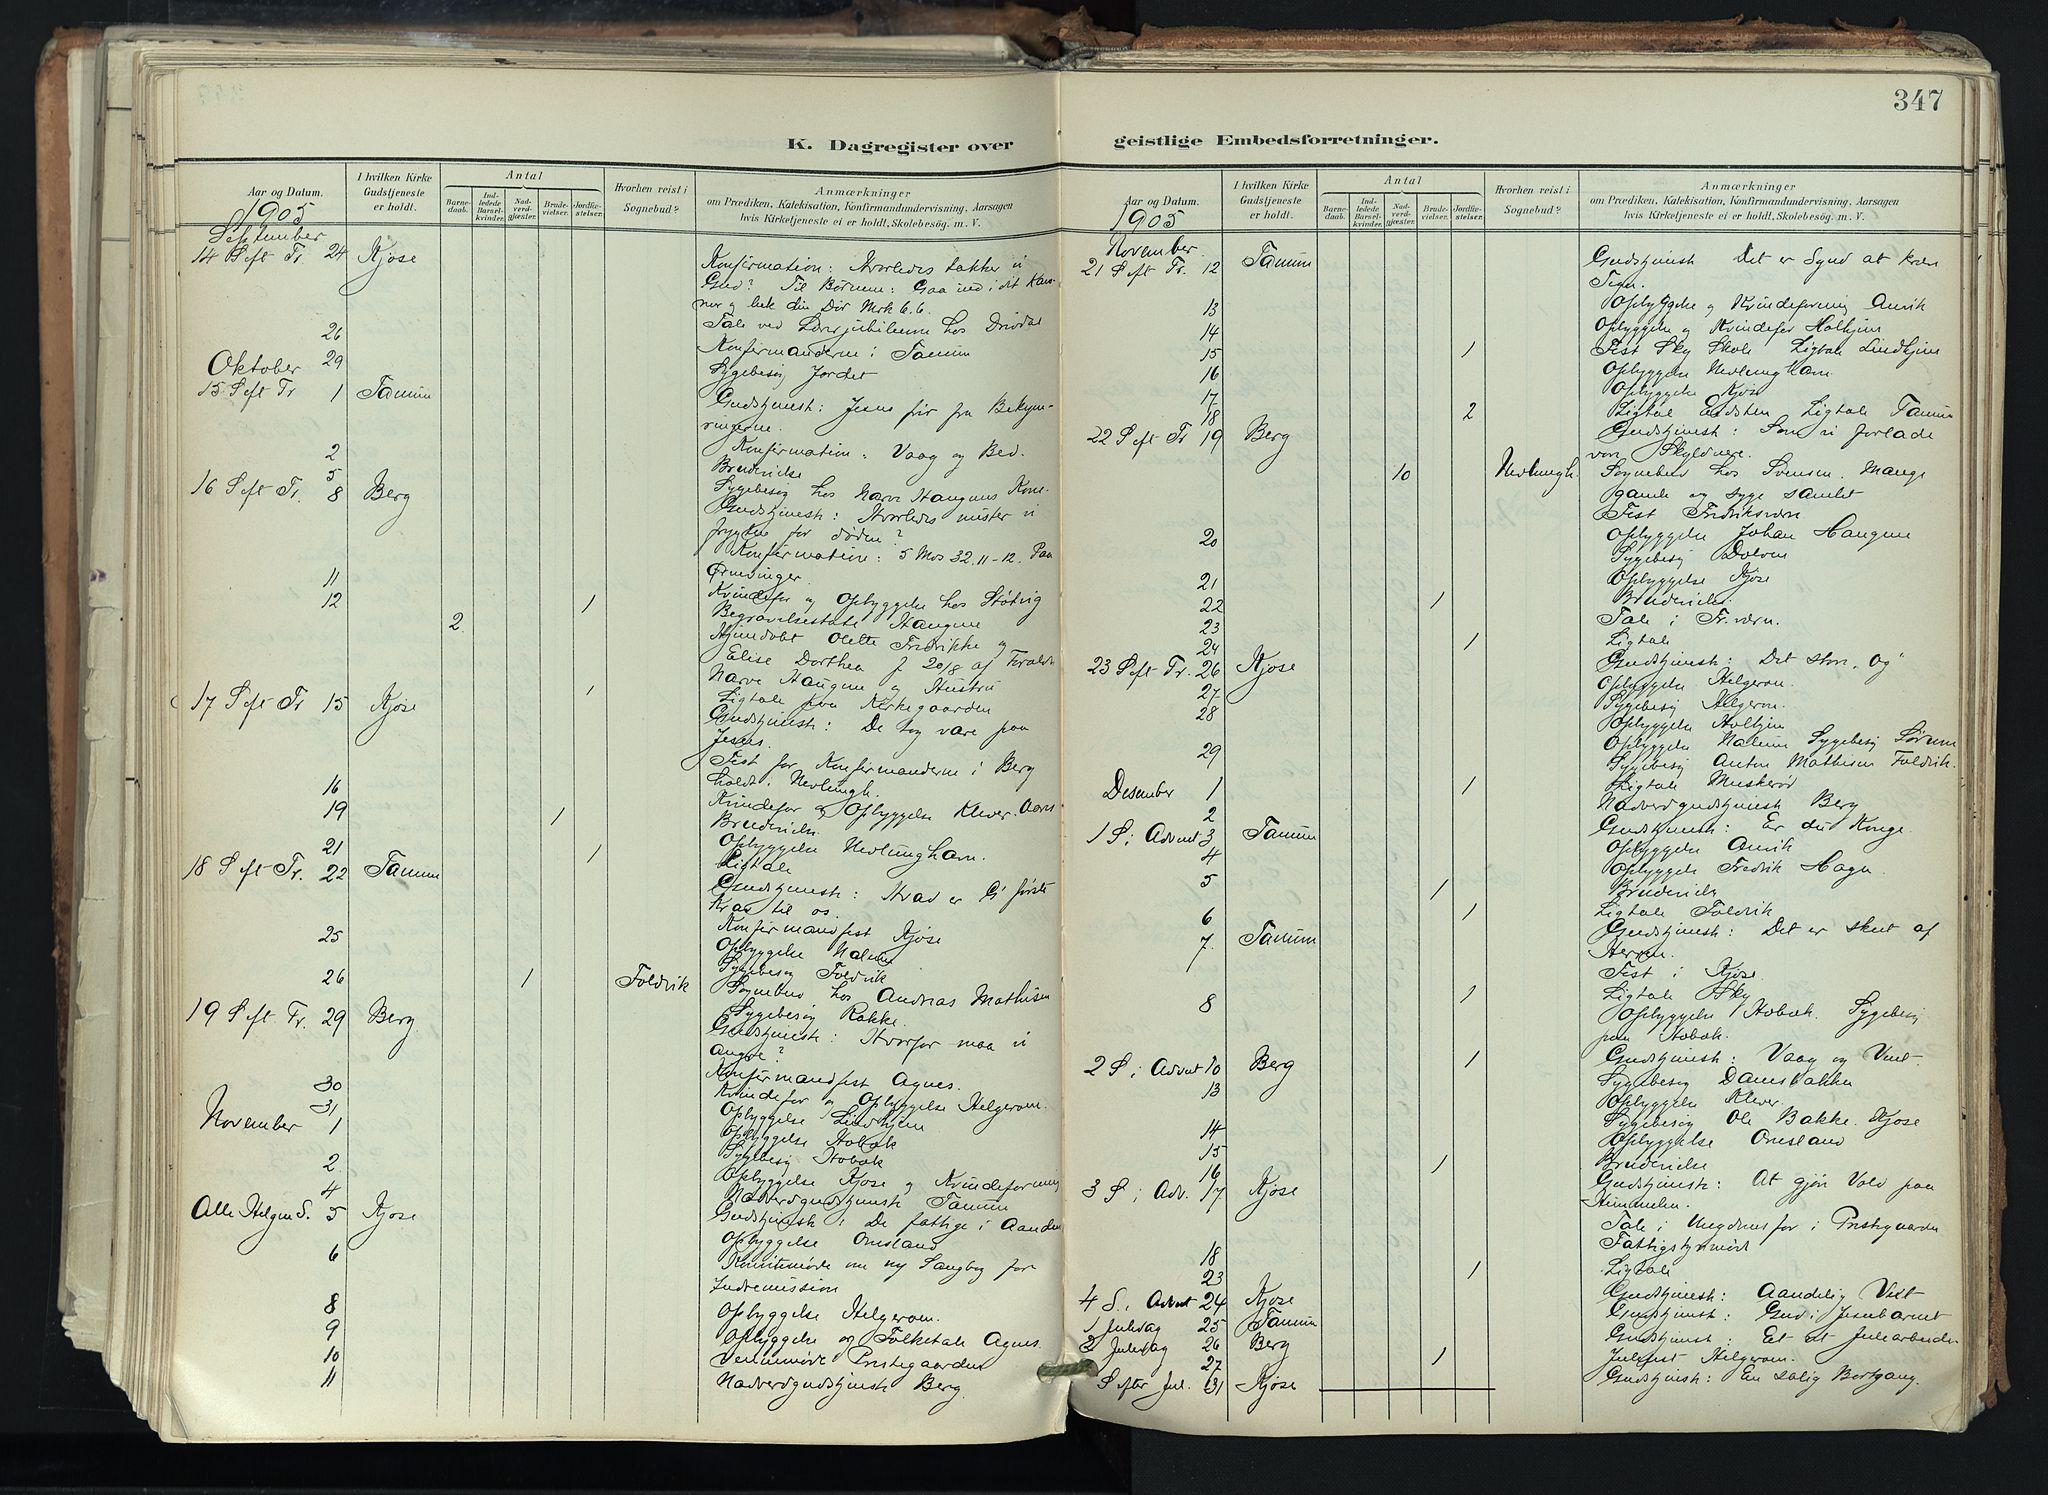 347
K. Dagregister over
geistlige Embedsforretninger.
Aar og Datum.
I hvilken Kirke Gudstjeneste er holdt.
Antal
Barne-daab.
Ind-ledede Barsel-kvinder.
Nad-verd-gjæster.
Brude-vielser.
Jordfæ-stelser.
Hvorhen reist i Sognebud?
Anmærkninger
om Prædiken, Katekisation, Konfirmandundervisning, Aarsagen
hvis Kirketjeneste ei er holdt, Skolebesøg. m. V.
1905
September
14 S eft Tr. 24 Kjose Konfirmation: Hvorledes takker vi
Gud? Til Børnene: Gaa ind i dit Kam-
mer og luk din Dør Mrk 6.6.
26 Tale ved Lærerjubilæum hos
29 Konfirmanderne i Tanum
Sygebesøg Jordet
Oktober
15 S eft Tr 1 Tanum Gudstjenest: Jesus frir fra Bekym-
ringerne.
2 Konfirmation: Vaag og Bed.
Brudevielse
5 Sygebesøg hos Narve Haugenes Kone
16 S eft Tr. 8 Berg Gudstjenest: Hvorledes mister vi
frygten for døden?
Konfirmation: 5 Mos 32.11-12. Paa
Ørnevinger.
11 Kvindefor og Opbyggelse hos
12 1 Begravelsestale Haugene
2 Hjemdøbt Olette Fredrikke og
Elise Dorthea f 20/8 af
Narve Haugene og Hustru
1 Ligtale paa Kirkegaarden
17 S eft Tr 15 Kjose Gudstjenest: De tog vare paa
Jesus.
Fest for Konfirmanderne i Berg
holdt i Nevlungh.
16 Kvindefor og Opbyggelse Klever.
19 1 Brudevielse
21 Opbyggelse Nevlunghavn.
1 Ligtale
18 S eft Tr. 22 Tanum Gudstjenest: Hvad er G's første
Krav til os.
Konfirmandfest Kjose
25 Opbyggelse Nalum
Sygebesøg Foldvik
26 1 Foldvik Sognebud hos Andreas Mathisen
Sygebesøg Rakke.
19 S eft Tr. 29 Berg Gudstjenest: Hvorfor maa vi
angre?
30 Konfirmandfest Agnes.
31 Kvindefor og Opbyggelse Helgeroen.
November 1 Opbyggelse Lindhjem
Opbyggelse Hobæk
2 Sygebesøg Hobæk
Opbyggelse Kjose og Kvindeforening
4 Nadverdgudstjenest Tanum
Alle Helgen S. 5 Kjose Gudstjenest: De fattige i Aanden
Opbyggelse Omsland
6 Komitemøde om ny Sangbog for
Indremission
8 Opbyggelse Helgeroen.
9 Opbyggelse og Folketale Agnes.
10 Vennemøde Prestegaarden
11 Nadverdgudstjenest Berg.
Aar og Datum.
I hvilken Kirke Gudstjeneste er holdt.
Antal
Barne-daab.
Ind-ledede Barsel-kvinder.
Nad-verd-gjæster.
Brude-vielser.
Jordfæ-stelser.
Hvorhen reist i Sognebud?
Anmærkninger
om Prædiken, Katekisation, Konfirmandundervisning, Aarsagen
hvis Kirketjeneste ei er holdt, Skolebesøg. m. V.
1905
November
21 S eft Tr. 12 Tanum Gudstjenest Det er Synd at kræve
Tegn.
13 Opbyggelse og Kvindeforening Anvik
14 Opbyggelse og Kvindefor Holhjem
15 1 Fest Sky Skole Ligtale Lindhjem
16 Opbyggelse Nevlunghavn
17 Opbyggelse Kjose
18 2 Ligtale Ligtale Tanum
22 S eft Tr 19 Berg Gudstjenest: Som vi forlade
vore Skyldnere.
10 Nevlungh. Sognebud hos Svensen. Mange
gamle og syge samlet
Fest Fredriksværn
20 Opbyggelse Johan Haugene
Sygebesøg Dolven
21 Opbyggelse Kjose
22 1 Brudevielse.
23 Tale i Fr.værn.
24 1 Ligtale
23 S eft Tr. 26 Kjose Gudstjenest: Det store "og"
27 Opbyggelse Helgeroen.
28 Sygebesøg Helgeroen.
Opbyggelse Holhjem
29 Opbyggelse Nalum Sygebesøg Sørum
Sygebesøg Anton Mathisen Foldvik.
Desember 1 1 Ligtale Muskerød
2 Nadverdgudstjenest Berg
1 S i Advent 3 Tanum Gudstjenest: Er du Konge.
4 Opbyggelse Anvik
5 Opbyggelse Fredrik Hagn.
1 Brudevielse
6 1 Ligtale Foldvik
7. Tanum Gudstjenest: Det er skeet af
Herren.
Fest i Kjose.
1 Ligtale Sky
8 Opbyggelse Hobæk. Sygebesøg
paa Hobæk.
2 S i Advent 10 Berg 1 Gudstjenest: Vaag og Vent-
13 Sygebesøg Damsbakken
Opbyggelse Klever.
14 Sygebesøg Ole Bakke. Kjose
15 Opbyggelse Omsland
16 1 Brudevielse
3 S i Adv. 17 Kjose Gudstjenest: At gjøre Vold paa
Himmelen.
Tale i Ungdomsfor i Prestegaarden
18 Fattigstyremøde
23 1 Ligtale
4 S. i Advent 24 Kjose Gudstjenest: Aandelig Vext
1 Juledag 25 Tanum Gudstjenest: Gud i Jesusbarnet
2 Juledag 26 Berg Gudstjenest: Et
27 1 Julefest Helgeroen.
S efter Jul. 31 Kjose Gudstjenest: En salig Bortgang.